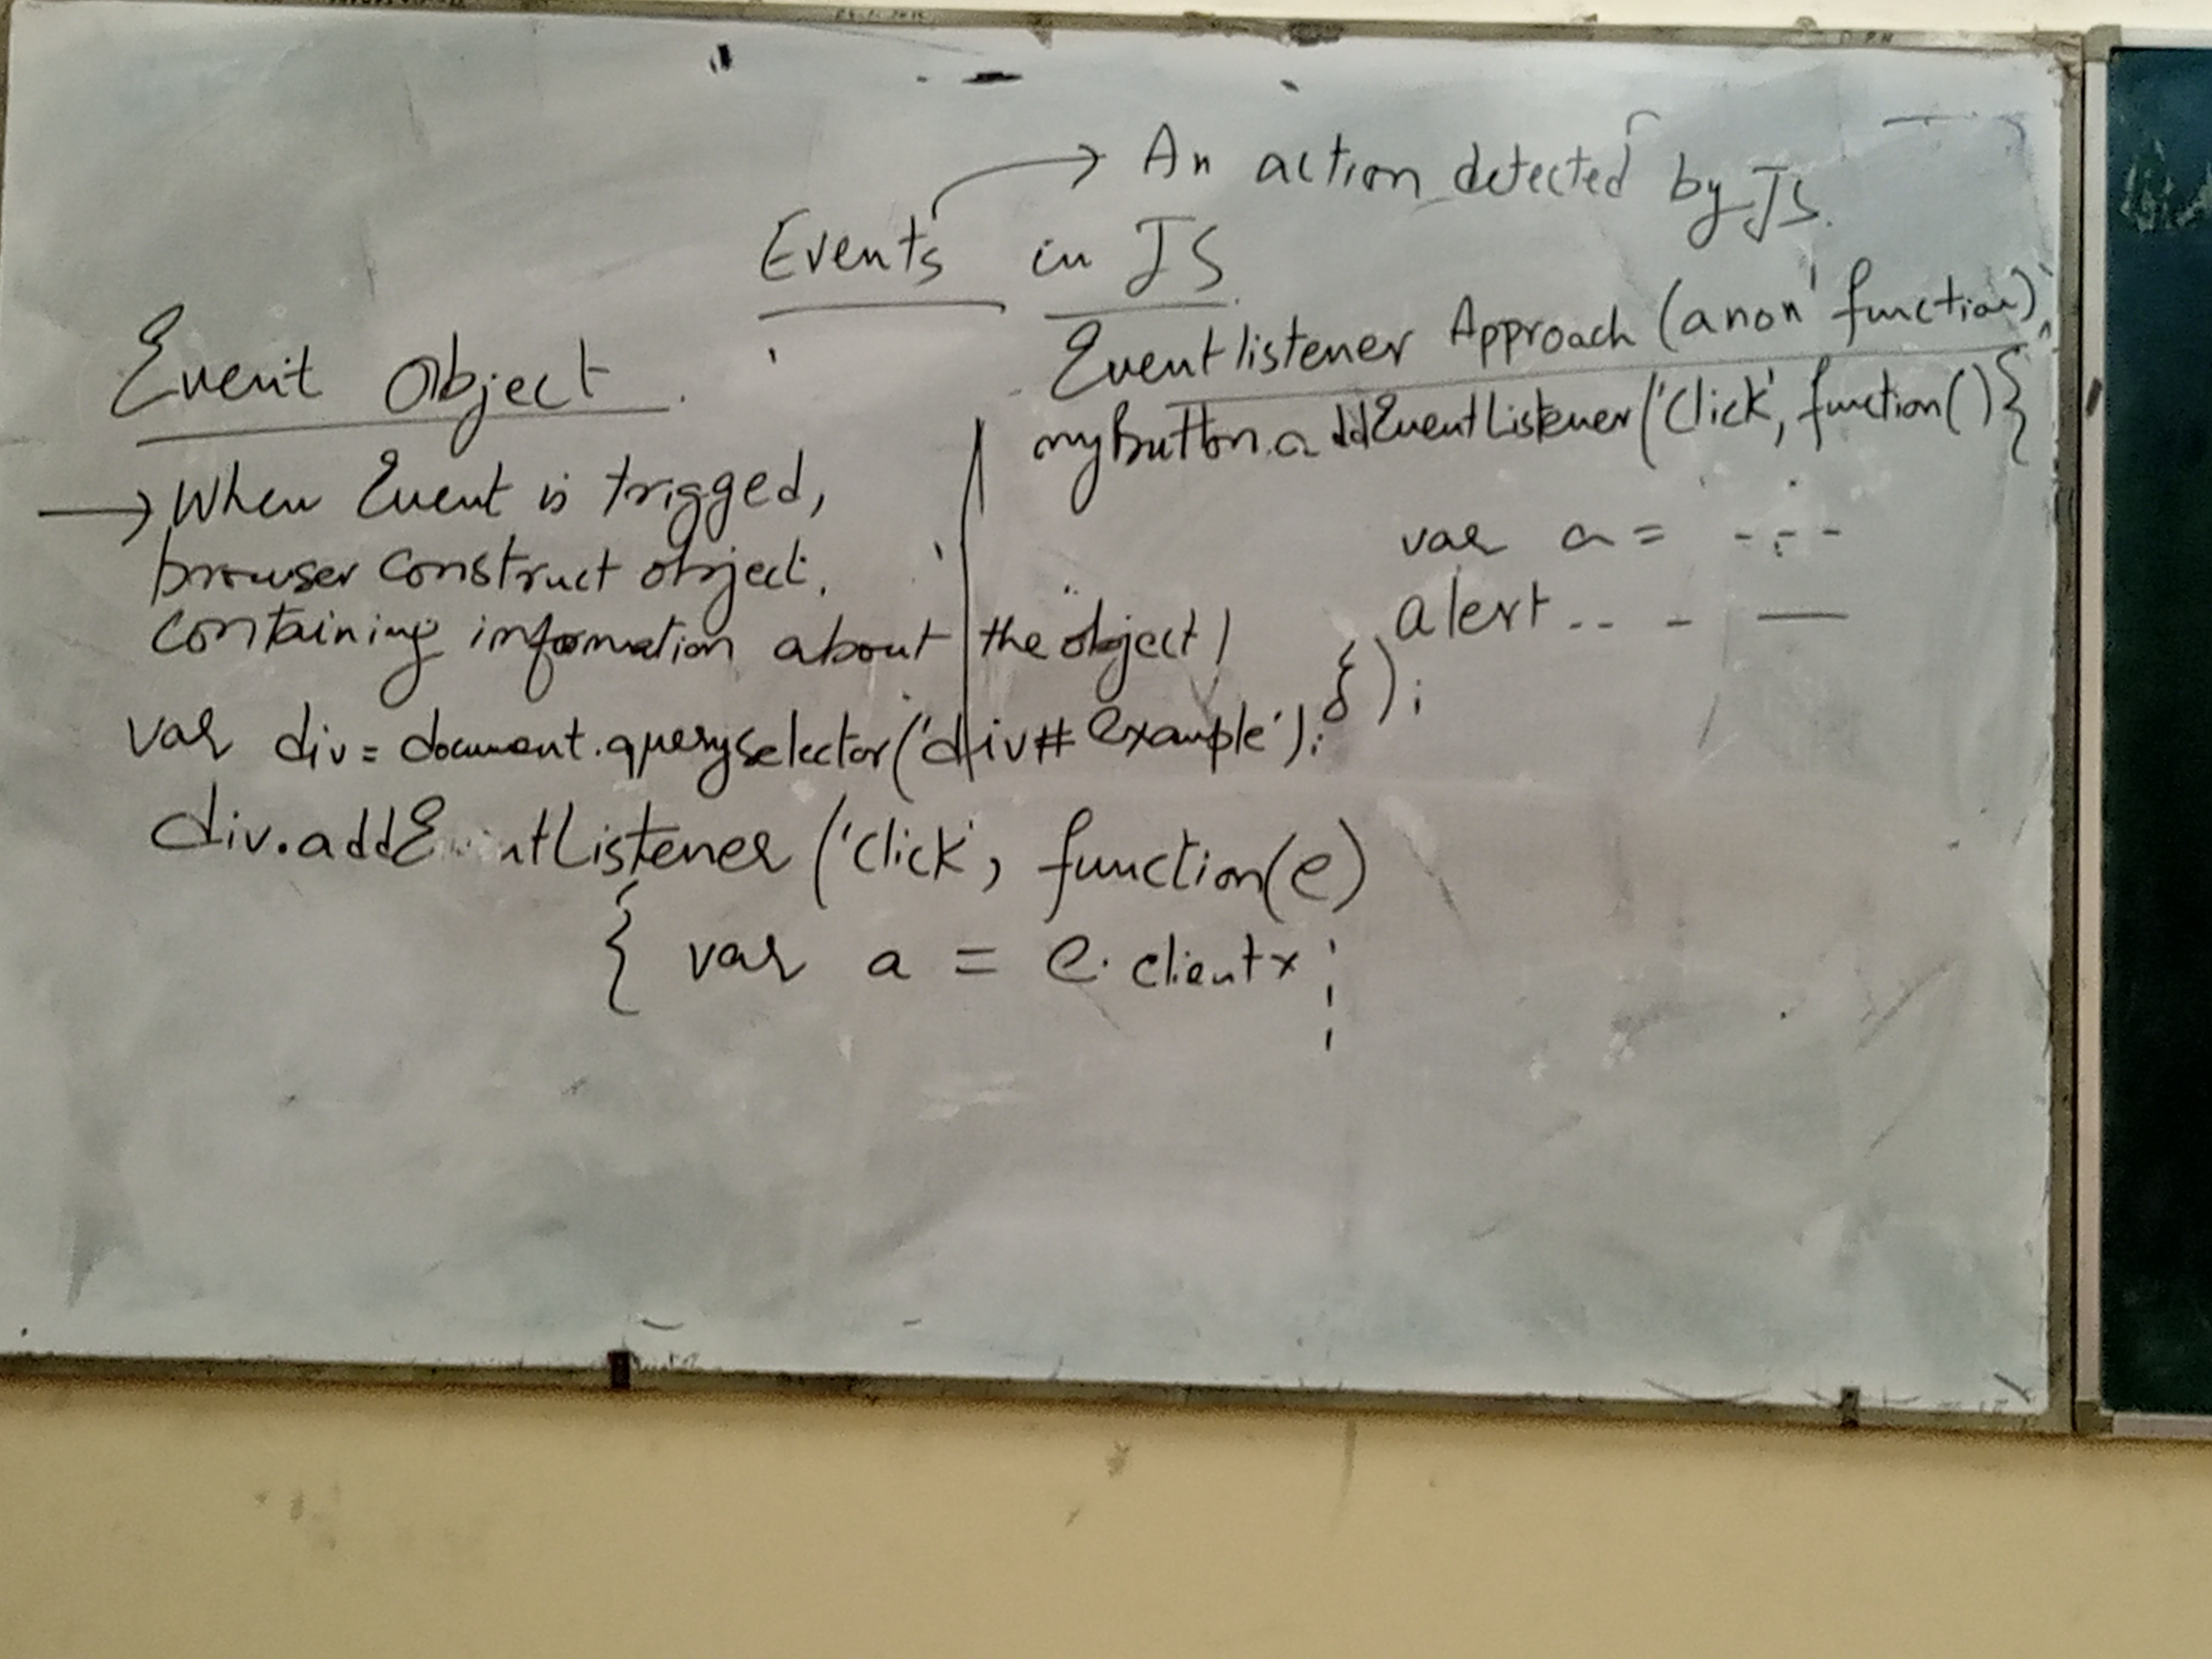 An action detected by JS.
Events in JS
Event Object
→ When Event is trigged,
browser construct object.
containing information about the object
var div = document.queryselector('div# example');
div.addE ntListener ('click', function(e)
{ var a = e.clientx ;
Eventlistener Approach (anon' function)
myButton.addEventListener('Click', function() {
var a = - - -
alert .. - —
});